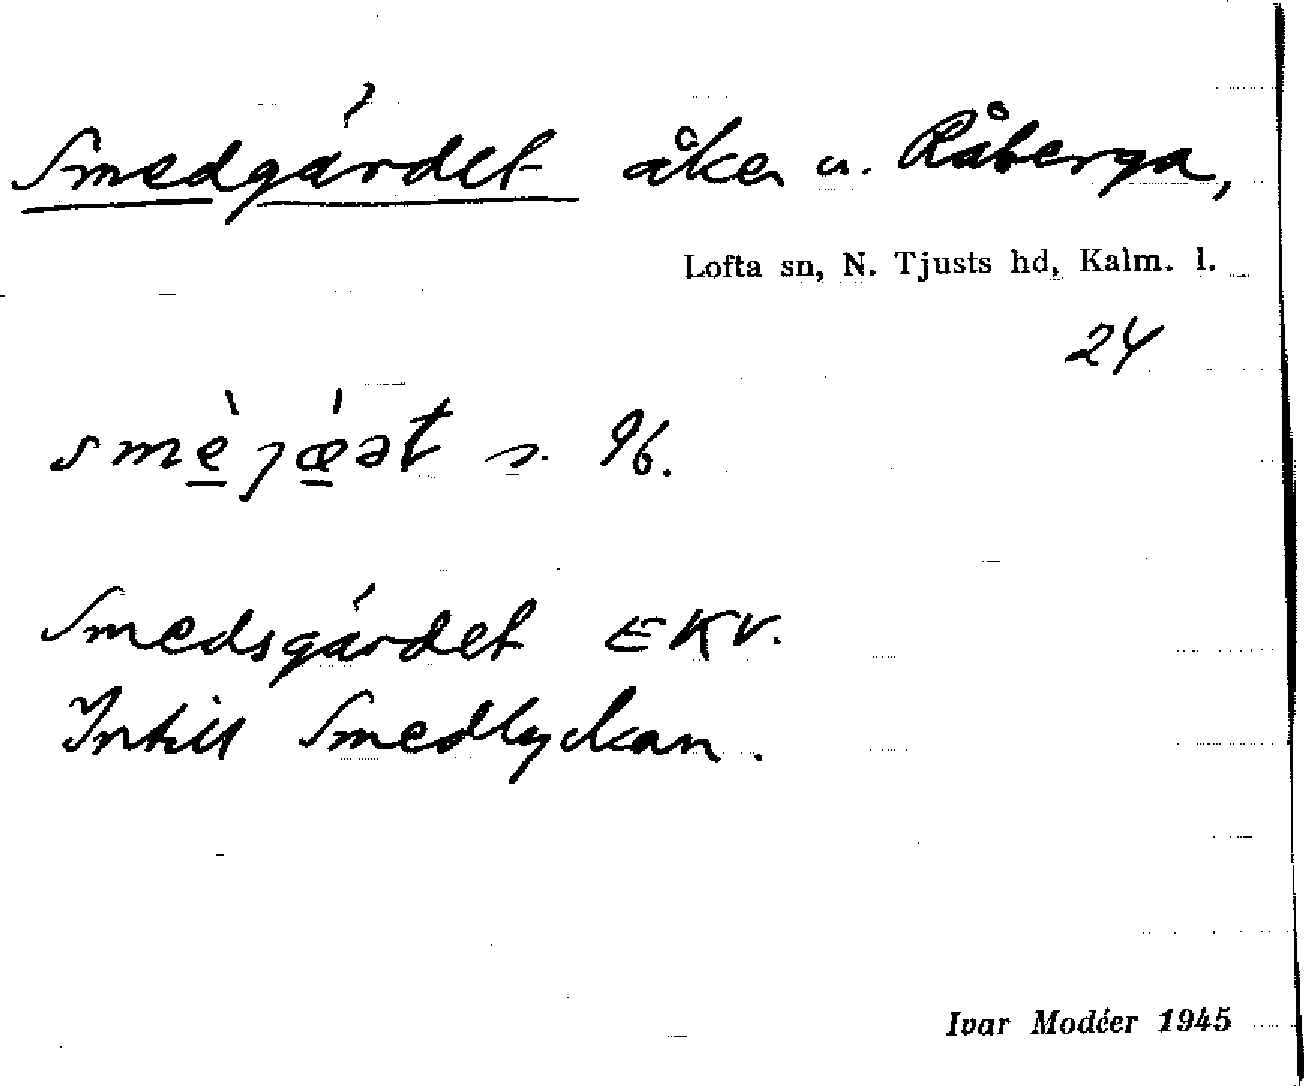 Smedgärdet åker u. Råberga,
Lofta sn, N. Tjusts hd, Kalm. l.
24
smèjæ̀ət s. 96.
Smedsgärdet EKV.
Intill Smedlyckan.
Ivar Modéer 1945